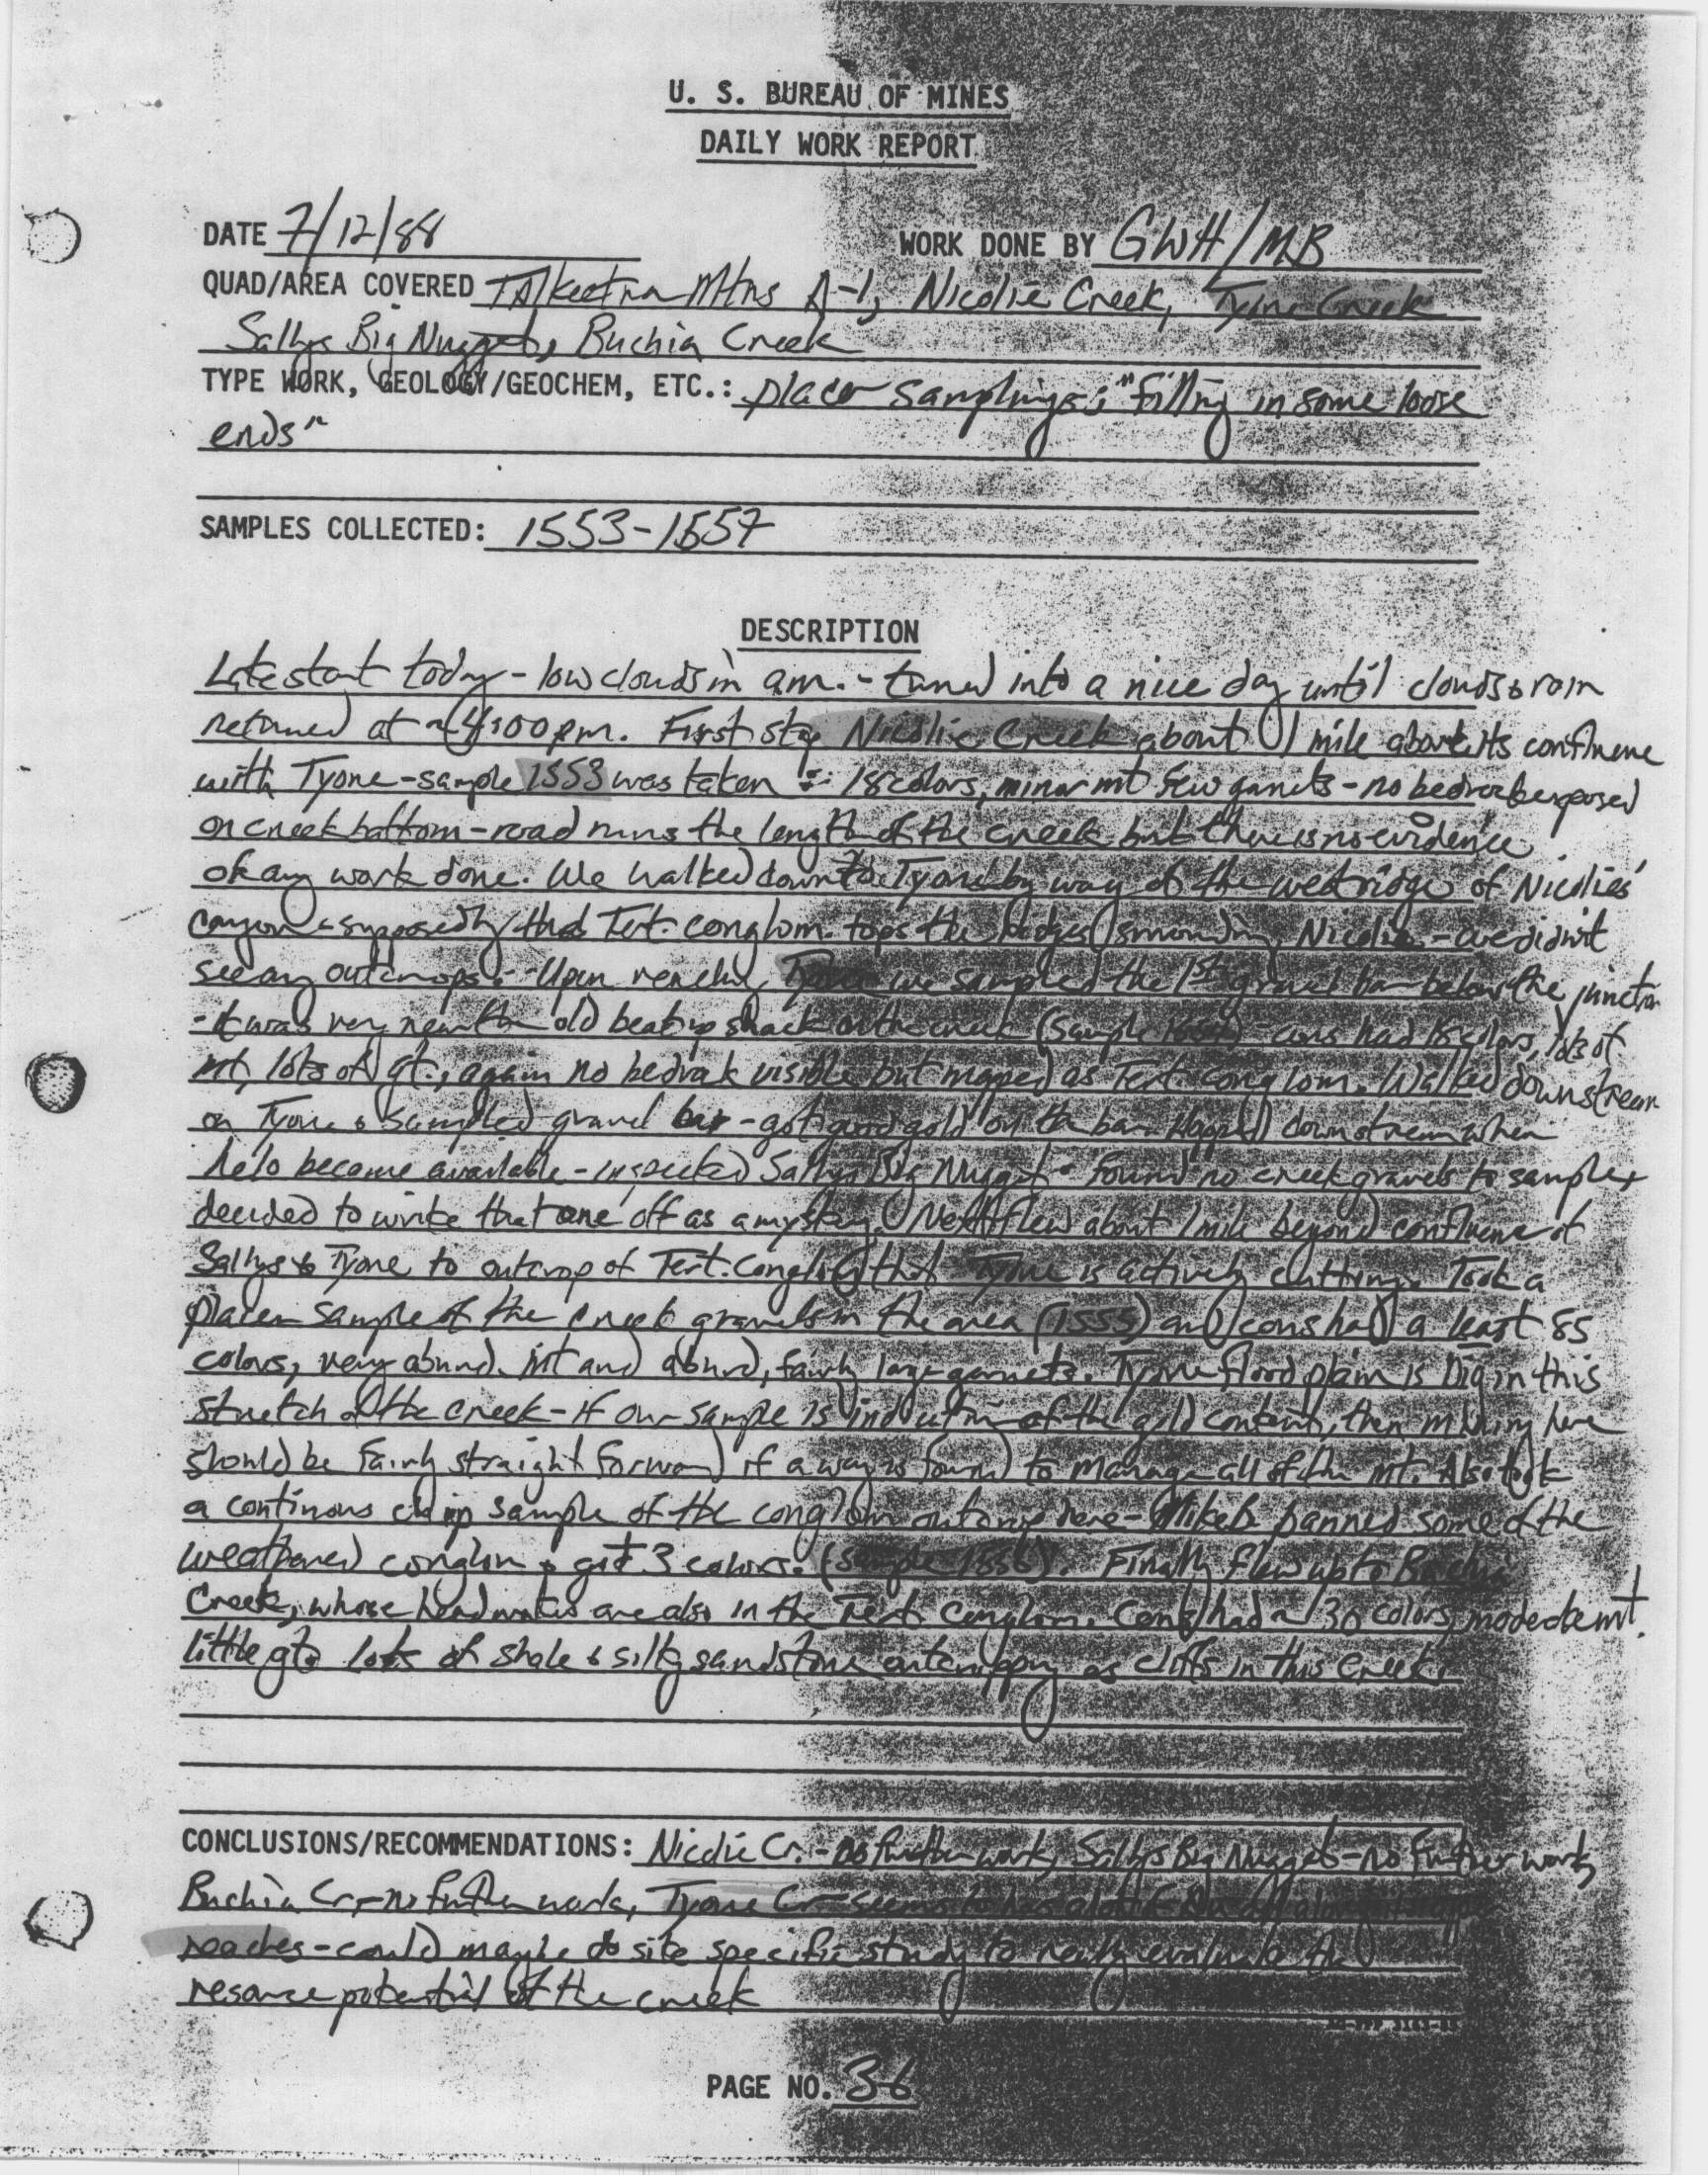 U. S. BUREAU OF MINES
DAILY WORK REPORT
DATE 7/12/88 WORK DONE BY GWH/MB
QUAD/AREA COVERED Talkeetna Mtns A-1, Nicolie Creek, Tyone Creek
Sallys Big Nugget, Buchia Creek
TYPE WORK, GEOLOGY/GEOCHEM, ETC.: placer samplings; "filling in some loose
ends"
SAMPLES COLLECTED: 1553-1557
DESCRIPTION
Late start today - low clouds in am. - turned into a nice day until clouds & rain
returned at ~4:00 pm. First stop Nicolie Creek about 1 mile above its confluence
with Tyone - sample 1553 was taken 18 colors, minor mt few garnets - no bedrock exposed
on creek bottom - road runs the length of the creek but there is no evidence
of any work done. We walked down to Tyone by way of the west ridge of Nicolies'
canyon - supposedly the Tert. conglom. tops the ridges surrounding Nicolie - we didn't
see any outcrops. - Upon reaching Tyone we sampled the 1st gravel bar below the junction
- it was very near the old beat up shack on the creek (sample ) cons had 18 colors, lots of
mt, lots of gt., again no bedrock visible but mapped as Tert. conglom. Walked downstream
on Tyone & sampled gravel bar - got good gold on the bar. Hopped downstream when
helo became available - inspected Sallys Big Nugget - found no creek gravels to sample,
decided to write that one off as a mystery. Next flew about 1 mile beyond confluence of
Sallys & Tyone to outcrop of Tert. Conglom that Tyone is actively cutting. Took a
placer sample of the creek gravels in the area (1555) and cons had at least 85
colors, very abund. mt and abund, fairly large garnets. Tyone flood plain is big in this
stretch of the creek - if our sample is indicative of the gold content, then mining here
should be fairly straight forward if a way is found to manage all of the mt. Also took
a continous chip sample of the conglom outcrop here - Mike B. panned some of the
weathered conglom & got 3 colors. (sample 1556). Finally flew up to Buchia
Creek, whose headwaters are also in the Tert. Conglom. Cons had ~ 30 colors, moderate mt.
little gt. lots of shale & silty sandstone outcropping as cliffs in this Creek.
CONCLUSIONS/RECOMMENDATIONS: Nicolie Cr. - no further work, Sallys Big Nugget - no further work,
Buchia Cr. - no further work, Tyone Cr - seems to
reaches - could maybe do site specific study to really evaluate the
resource potential of the creek
PAGE NO. 36